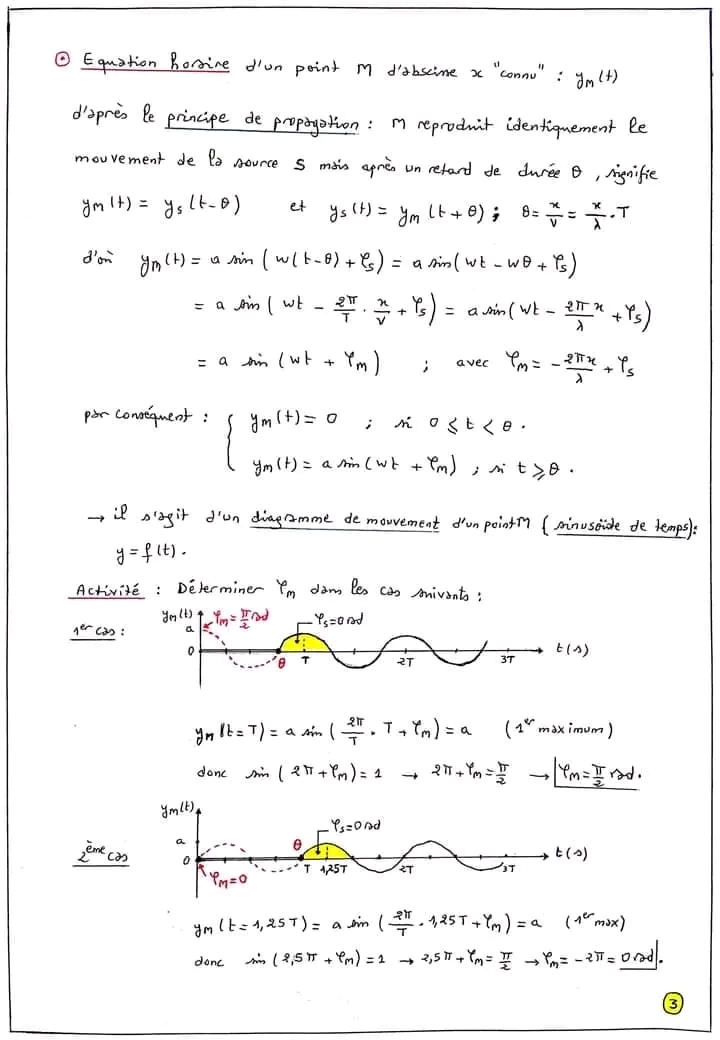 ⊙ Equation horaire d'un point M d'abscisse x "connu" : yM(t)
d'après le principe de propagation : M reproduit identiquement le
mouvement de la source S mais après un retard de durée θ, signifie
yM(t) = ys(t-θ) et ys(t) = yM(t+θ) ; θ = x/v = x/λ . T
d'où yM(t) = a sin (w(t-θ) + φs) = a sin(wt - wθ + φs)
= a sin (wt - 2π/T . x/v + φs) = a sin(wt - 2πx/λ + φs)
= a sin (wt + φM) ; avec φM = - 2πx/λ + φs
par conséquent : { yM(t) = 0 ; si 0 ⩽ t < θ .
yM(t) = a sin(wt + φM) ; si t ⩾ θ .
→ il s'agit d'un diagramme de mouvement d'un point M (sinusoïde de temps) :
y = f(t) .
Activité : Déterminer φM dans les cas suivants :
1er cas :
yM(t)
φM = π/2 rad
φs = 0 rad
a
0
θ
T
2T
3T
t(s)
yM(t=T) = a sin (2π/T . T + φM) = a (1er maximum)
donc sin (2π + φM) = 1 → 2π + φM = π/2 → φM = π/2 rad.
2ème cas
yM(t)
φs = 0 rad
a
0
θ
T
1,25T
2T
3T
t(s)
φM = 0
yM(t = 1,25T) = a sin (2π/T . 1,25T + φM) = a (1er max)
donc sin (2,5π + φM) = 1 → 2,5π + φM = π/2 → φM = - 2π = 0 rad.
3